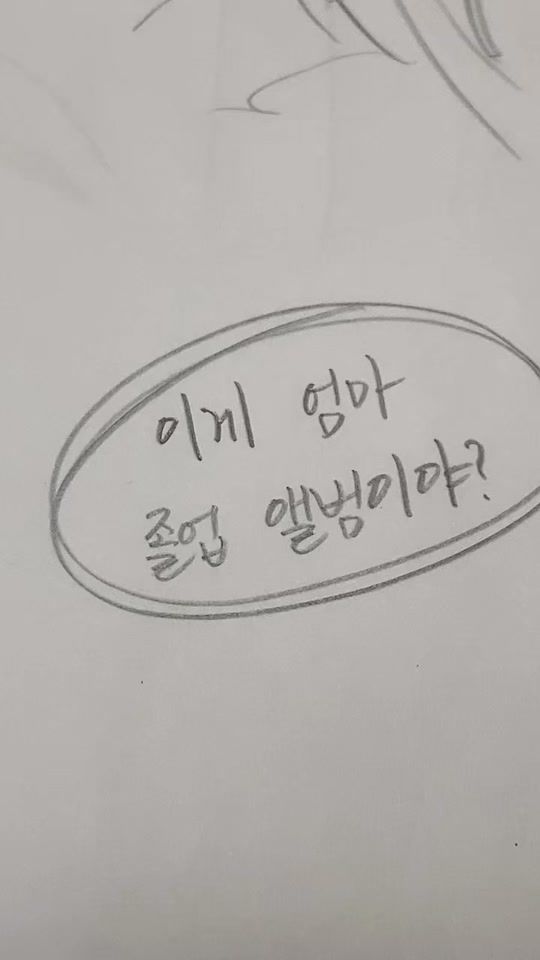 이게 엄마
졸업 앨범이야?